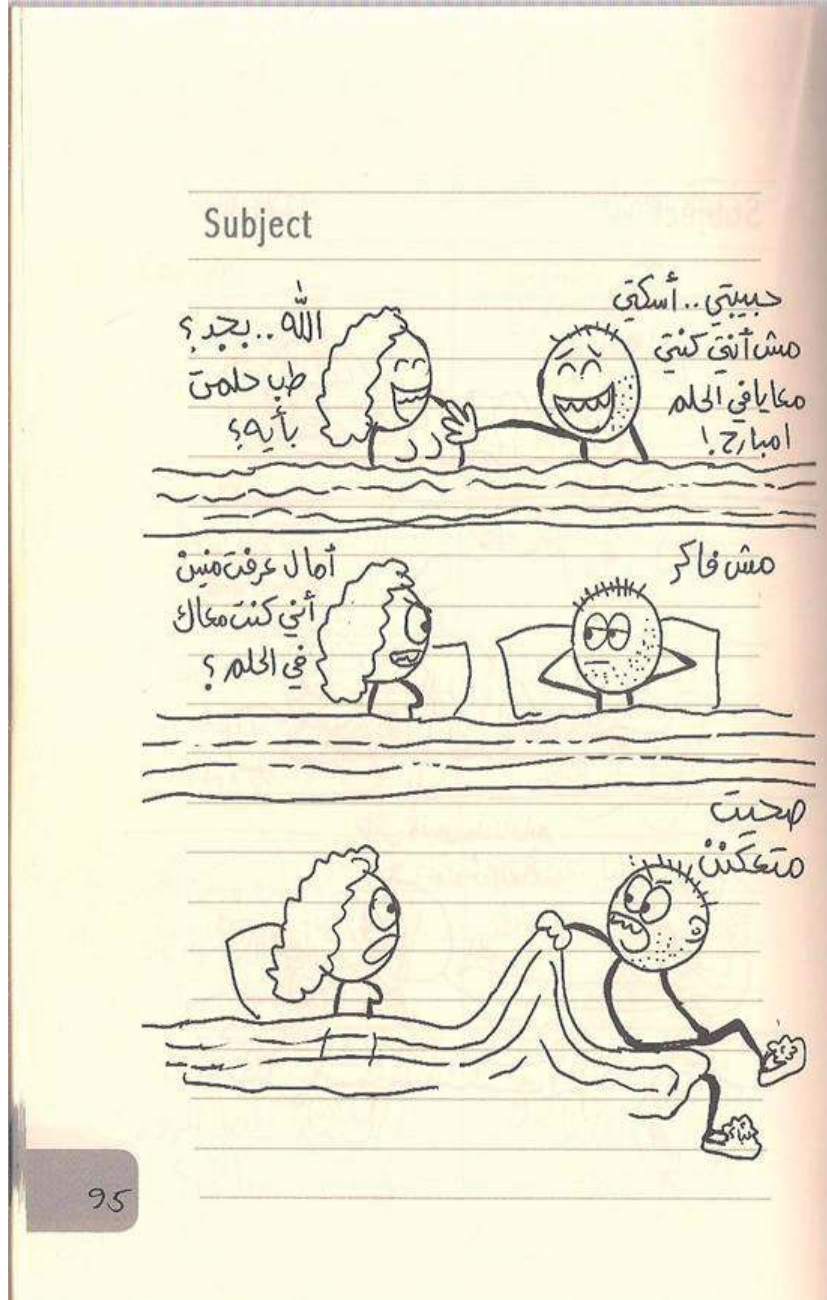 Subject
حبيبتي.. أسكتي
مش أنتي كنتي
معايا في الحلم
امبارح!
الله.. بجد؟
طب حلمت
بأيه؟
مش فاكر
أمال عرفت منين
أني كنت معاك
في الحلم؟
صحيت
متعكنن
95